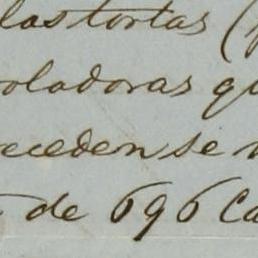 las tortas (
oladoras qu
eceden se
de 696 Ca